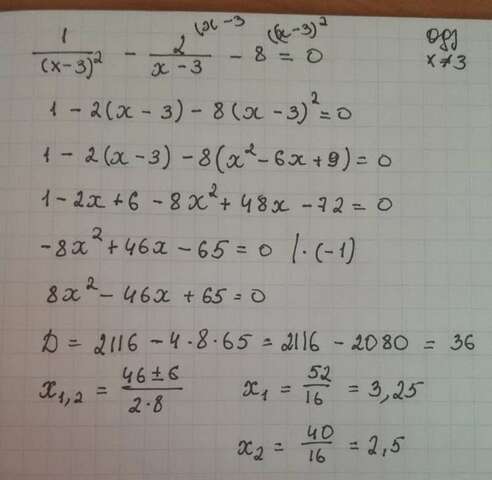 1/(x-3)² - 2/(x-3) - 8 = 0 (x-3 (x-3)² ОДЗ x≠3
1 - 2(x - 3) - 8(x - 3)² = 0
1 - 2(x - 3) - 8(x² - 6x + 9) = 0
1 - 2x + 6 - 8x² + 48x - 72 = 0
-8x² + 46x - 65 = 0 |·(-1)
8x² - 46x + 65 = 0
D = 2116 - 4·8·65 = 2116 - 2080 = 36
x₁,₂ = (46 ± 6)/(2·8) x₁ = 52/16 = 3,25
x₂ = 40/16 = 2,5